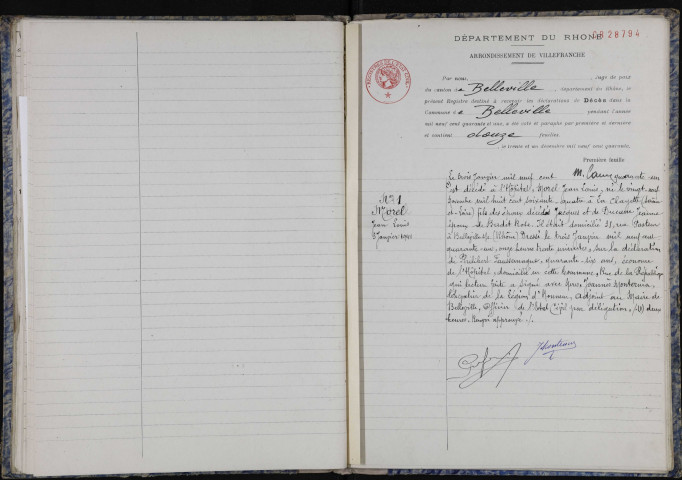 DÉPARTEMENT DU RHÔNE
0828794
ARRONDISSEMENT DE VILLEFRANCHE
Par nous, juge de paix
du canton de Belleville département du Rhône, le
présent Registre destiné à recevoir les déclarations de Décès dans la
Commune de Belleville pendant l'année
mil neuf cent quarante et un, a été coté et paraphé par première et dernière
et contient douze feuillets.
, le trente et un décembre mil neuf cent quarante.
Première feuille
N° 1
Morel
Jean Louis
3 Janvier 1941
Le trois Janvier mil neuf cent quarante un
est décédé à l'Hôpital, Morel Jean Louis, né le vingt
mil huit cent soixante quatre à La Chapelle
et Loire) fils des époux décédés Jacques et de Jeanne
époux de Rose. Il était domicilié 31, rue Pasteur
à Belleville s/s (Rhône) Dressé le trois Janvier mil neuf cent
quarante-un, onze heures trente minutes, sur la déclaration
de Philibert quarante six ans, économe
de l'Hôpital, domicilié en cette commune, Rue de la République
qui lecture faite a signé avec Nous, Joannès
Chevalier de la Légion d'Honneur, Adjoint au Maire de
Belleville, Officier de l'Etat Civil par délégation, /(1) deux
heures. Renvoi approuvé ./.